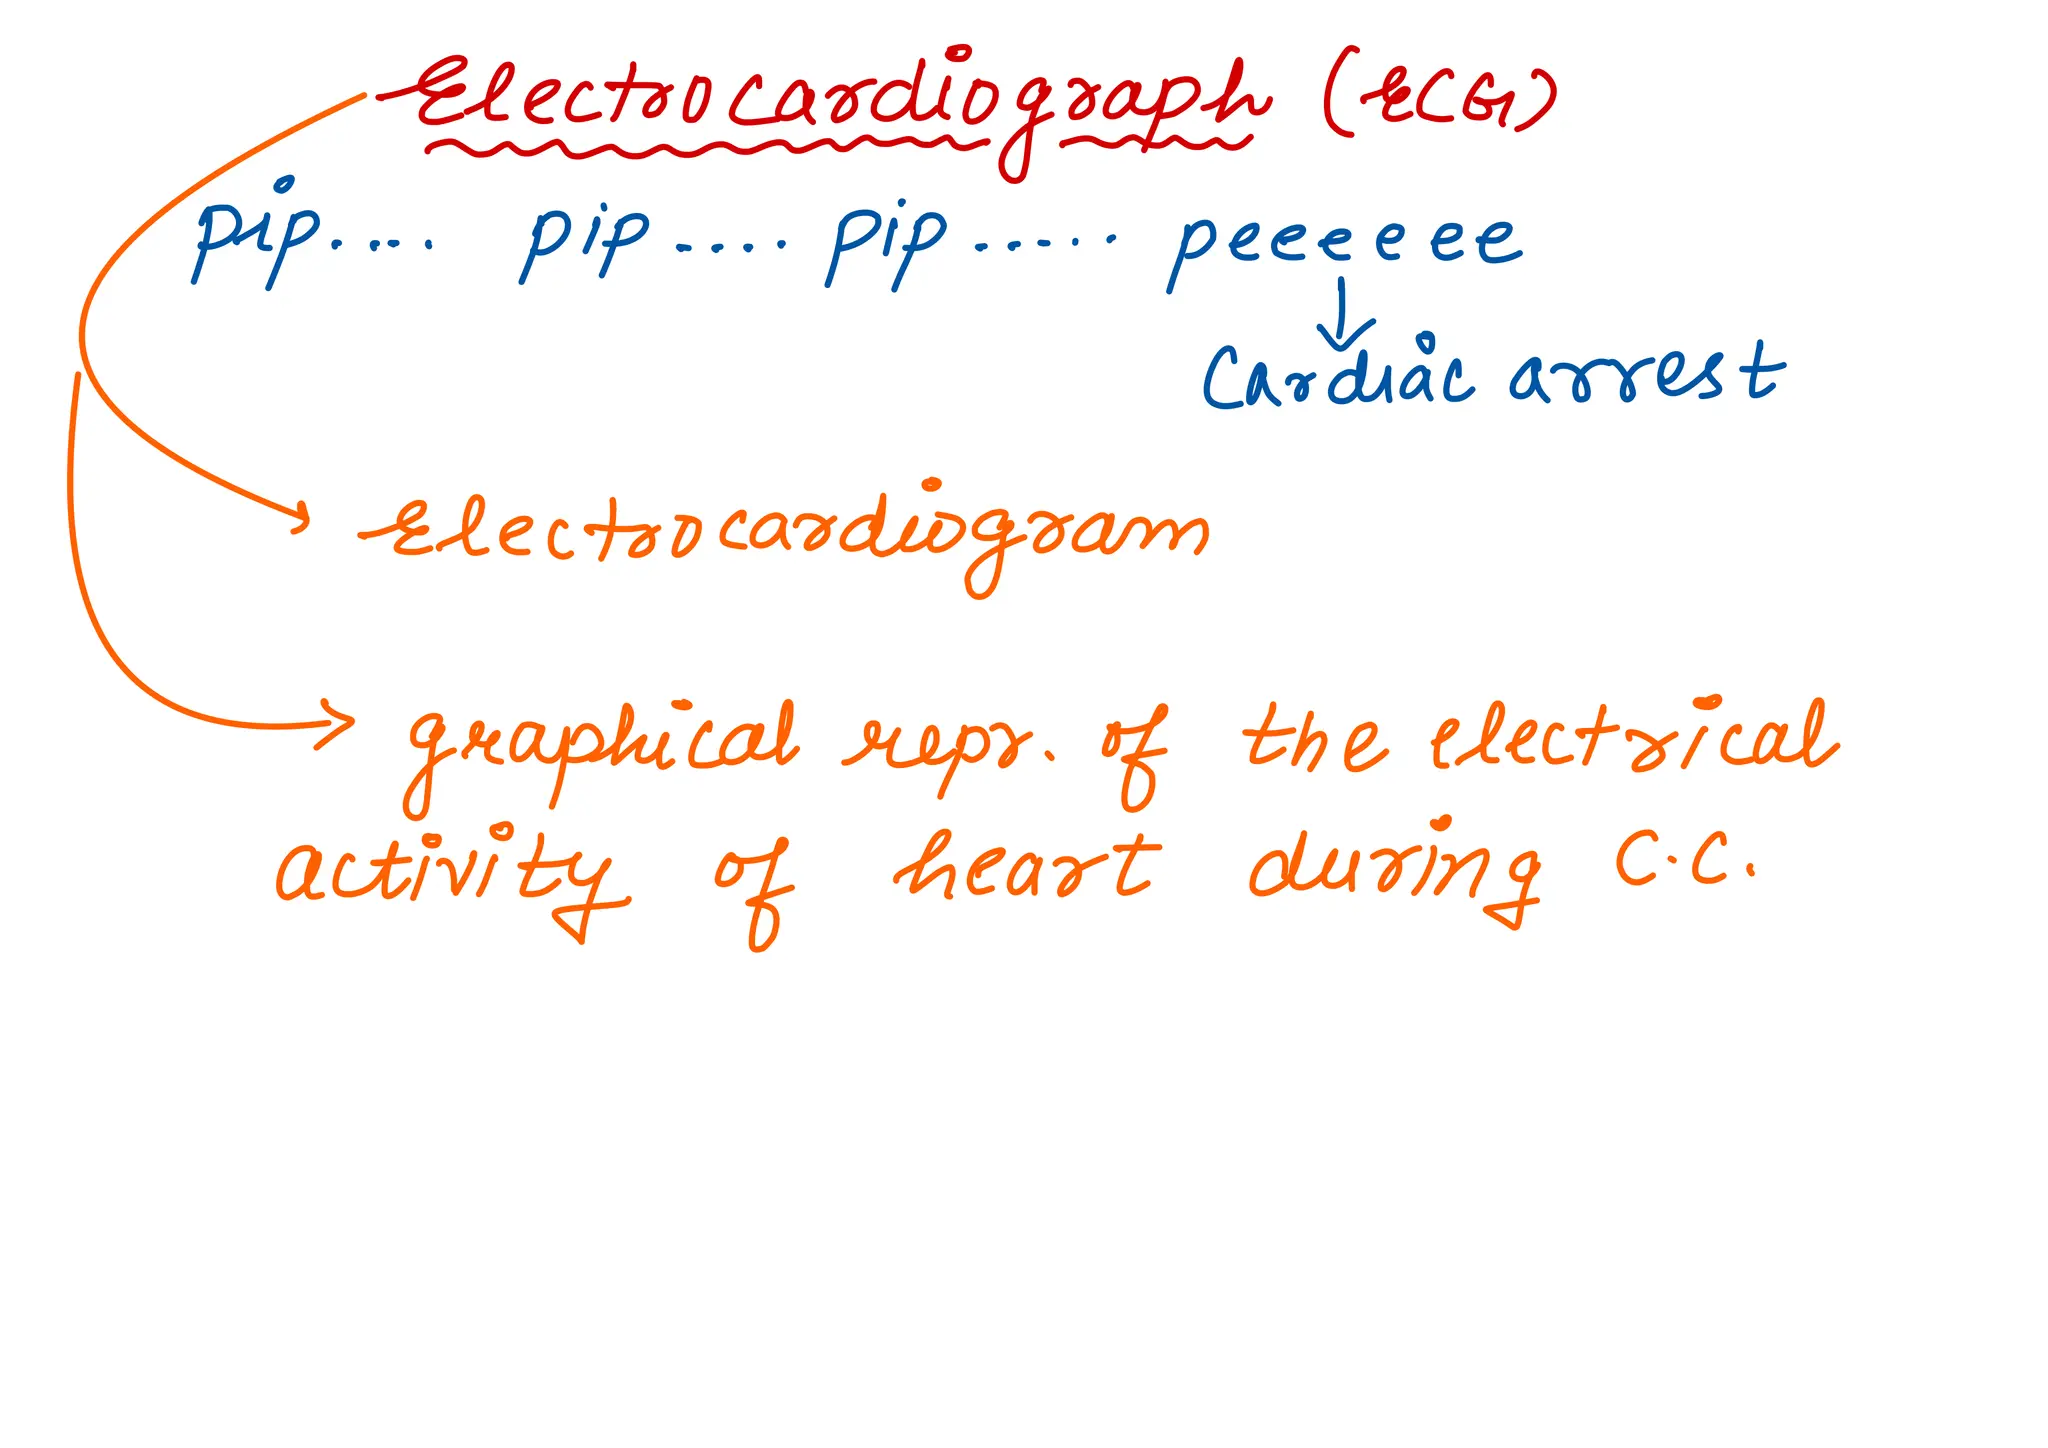 Electrocardiograph (ECG)
pip.... pip.... pip..... peeeeee
Cardiac arrest
Electrocardiogram
graphical repr. of the electrical
activity of heart during C.C.